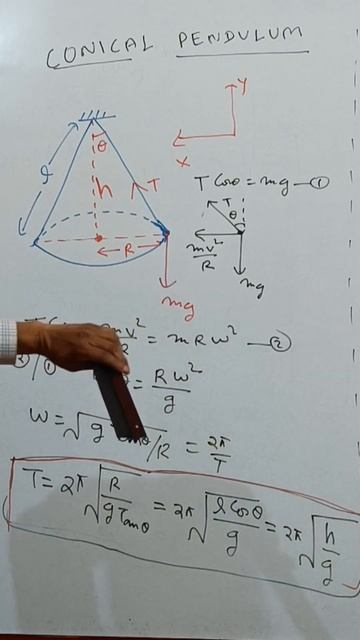 CONICAL PENDULUM
Y
X
θ
l
h
T
R
mg
T Cosθ = mg —①
T
θ
mv²/R
mg
mv²/R = mRω² —②
②/①
= Rω²/g
W = √g θ/R = 2π/T
T = 2π √R/gTanθ = 2π √lCosθ/g = 2π √h/g